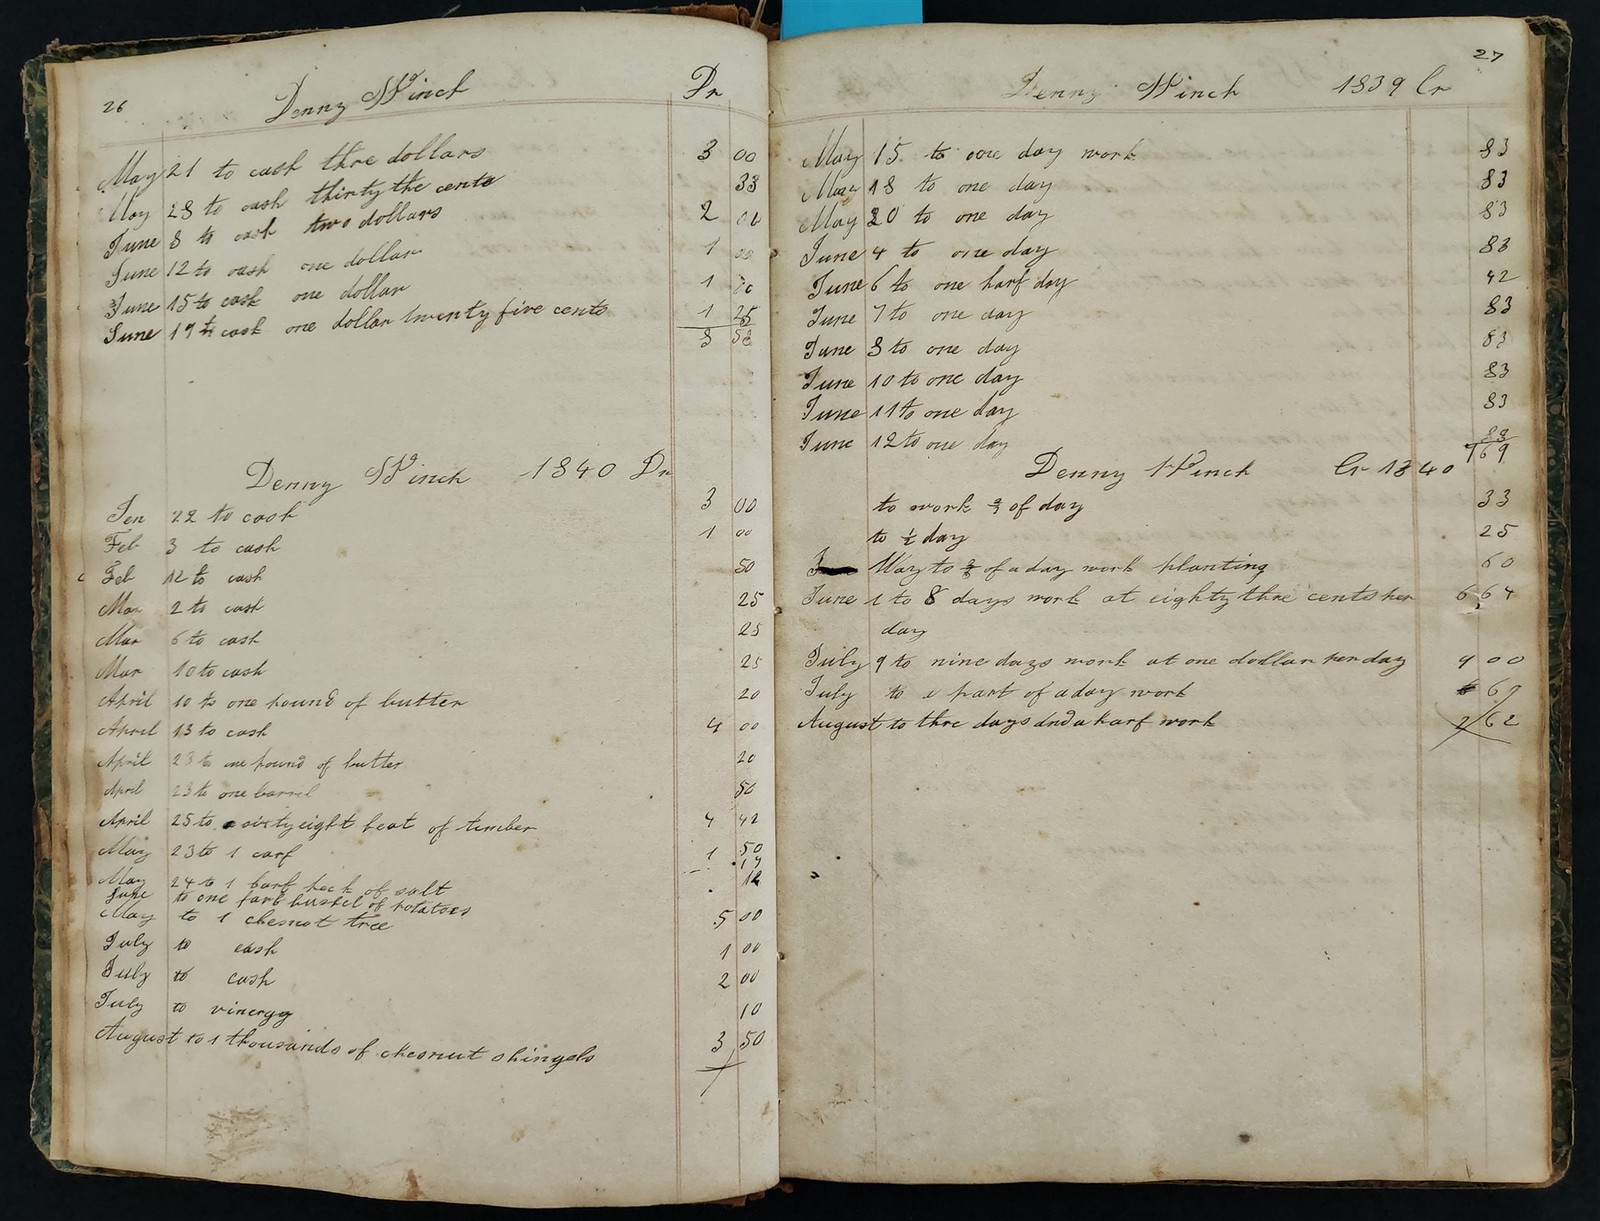 26 Denny Winch Dr
May 21 to cash thre dollars 3 00
May 28 to cash thirty the cents 33
June 8 to cash two dollars 2 00
June 12 to cash one dollar 1 00
June 15 to cash one dollar 1 00
June 19 to cash one dollar twenty five cents 1 25
8 58
Denny Winch 1840 Dr
Jen 22 to cash 3 00
Feb 3 to cash 1 00
Feb 12 to cash 50
Mar 2 to cash 25
Mar 6 to cash 25
Mar 10 to cash 25
April 10 to one pound of butter 20
April 13 to cash 4 00
April 23 to one pound of butter 20
April 23 to one barrel 50
April 25 to sixty eight feat of timber 4 42
May 23 to 1 carf 1 50
May 24 to 1 harf peck of salt 17
June to one harf bushel of potatoes 12
May to 1 chesnot tree 5 00
July to cash 1 00
July to cash 2 00
July to vinergy 10
August to 1 thousands of chesnut shingels 3 50
27
Denny Winch 1839 Cr
May 15 to one day work 83
May 18 to one day 83
May 20 to one day 83
June 4 to one day 83
June 6 to one harf day 42
June 7 to one day 83
June 8 to one day 83
June 10 to one day 83
June 11 to one day 83
June 12 to one day 83
7 69
Denny Winch Cr 1840
to work of day 33
to day 25
May to of a day work planting 60
June 1 to 8 days work at eighty thre cents per 6 64
day
July 9 to nine days work at one dollar per day 9 00
July to a part of a day work 67
August to thre days and a harf work 2 62